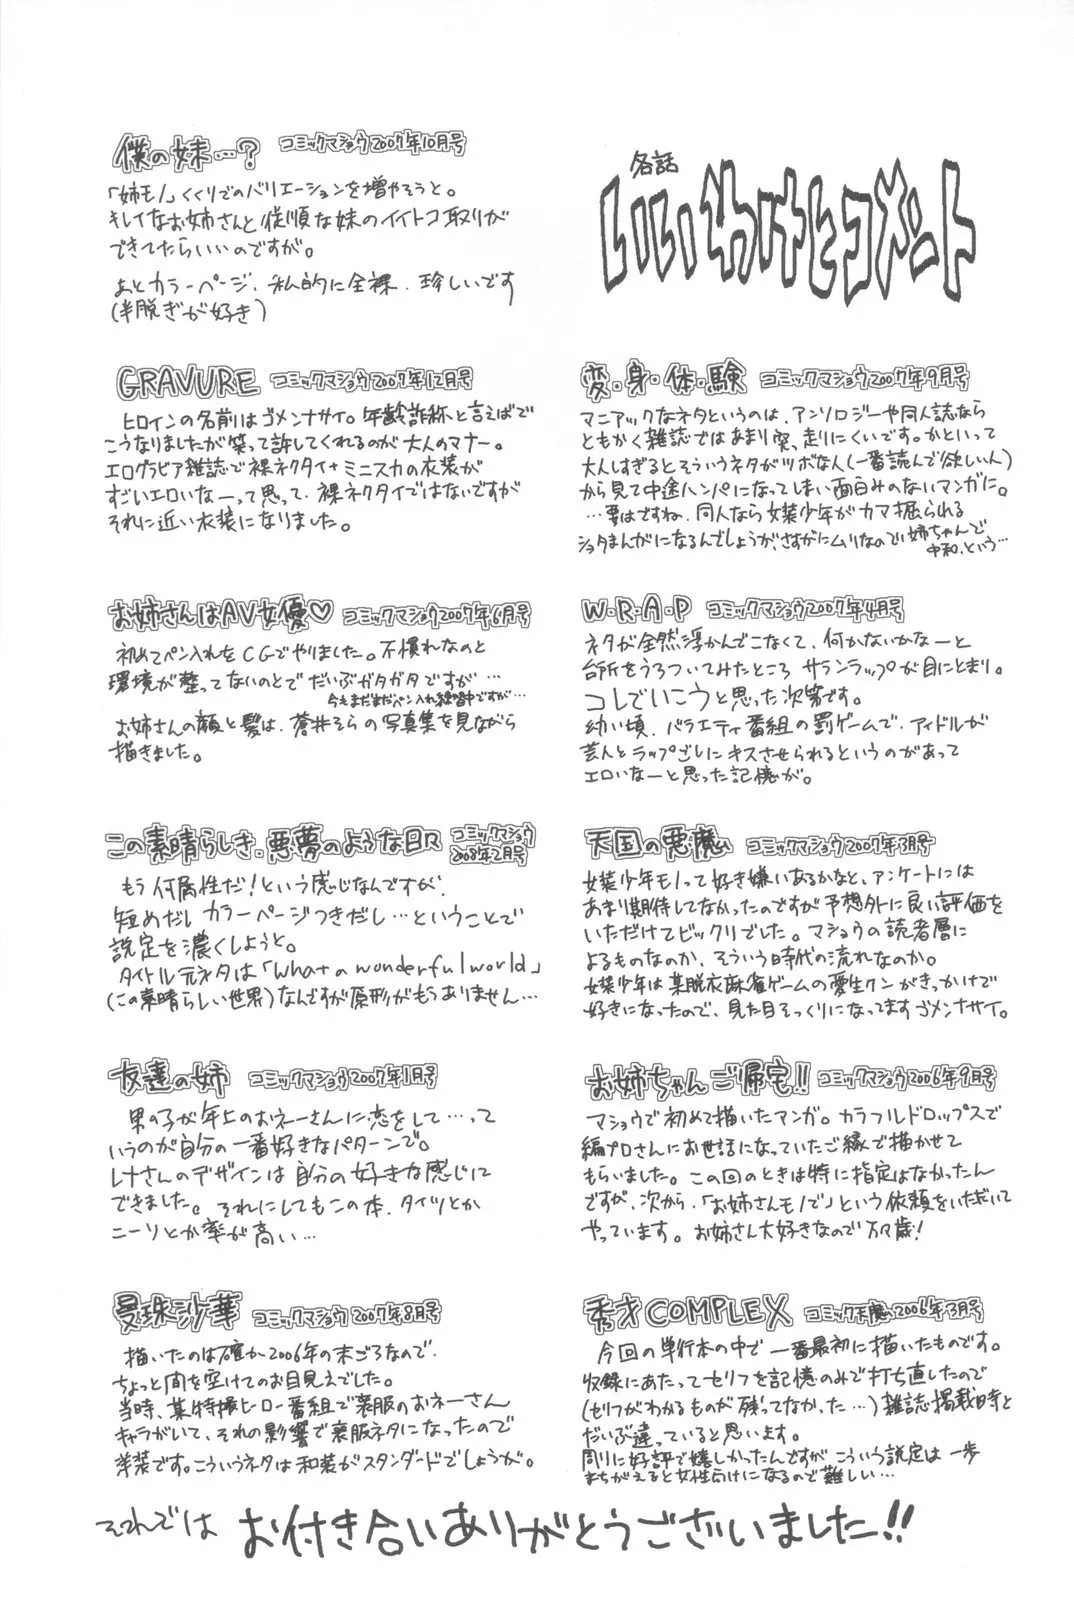 各話
いいわけとコメント
変・身・体・験 コミックマショウ2007年9月号
マニアックなネタというのは、アンソロジーや同人誌なら
ともかく雑誌ではあまり突っ走りにくいです。かといって
大人しすぎるとそういうネタがツボな人(一番読んで欲しい人)
から見て中途ハンパになってしまい面白みのないマンガに。
…要はですね、同人なら女装少年がカマ掘られる
ショタまんがになるんでしょうが、さすがにムリなので、姉ちゃんで
中和、という…
W・R・A・P コミックマショウ2007年4月号
ネタが全然浮かんでこなくて、何かないかなーと
台所をうろついてみたところ サランラップが目にとまり。
コレでいこうと思った次第です。
幼い頃、バラエティ番組の罰ゲームで、アイドルが
芸人とラップごしにキスさせられるというのがあって
エロいなーと思った記憶が。
天国の悪魔 コミックマショウ2007年3月号
女装少年モノって好き嫌いあるかなと、アンケートには
あまり期待してなかったのですが予想外に良い評価を
いただけてビックリでした。マショウの読者層に
よるものなのか、そういう時代の流れなのか。
女装少年は某脱衣麻雀ゲームの愛生クンがきっかけで
好きになったので、見た目そっくりになってますゴメンナサイ。
お姉ちゃんご帰宅!! コミックマショウ2006年9月号
マショウで初めて描いたマンガ。カラフルドロップスで
編プロさんにお世話になっていたご縁で描かせて
もらいました。この回のときは特に指定はなかったん
ですが、次から、「お姉さんモノで」という依頼をいただいて
やっています。お姉さん大好きなので万歳!
秀才COMPLEX コミック天魔2006年3月号
今回の単行本の中で一番最初に描いたものです。
収録にあたってセリフを記憶のみで打ち直したので
(セリフがわかるものが残ってなかった…)雑誌掲載時と
だいぶ違っていると思います。
周りに好評で嬉しかったんですが、こういう設定は一歩
まちがえると女性向けになるので難しい…
僕の妹…? コミックマショウ2007年10月号
「姉モノ」くくりでのバリエーションを増やそうと。
キレイなお姉さんと従順な妹のイイトコ取りが
できてたらいいのですが。
あとカラーページ、私的に全裸、珍しいです
(半脱ぎが好き)
GRAVURE コミックマショウ2007年12月号
ヒロインの名前はゴメンナサイ。年齢詐称と言えばで
こうなりましたが笑って許してくれるのが大人のマナー。
エログラビア雑誌で裸ネクタイ+ミニスカの衣装が
すごいエロいなーって思って、裸ネクタイではないですが
それに近い衣装になりました。
お姉さんはAV女優♡ コミックマショウ2007年6月号
初めてペン入れをCGでやりました。不慣れなのと
環境が整ってないのとでだいぶガタガタですが…
今もまだまだペン入れ練習中ですが…
お姉さんの顔と髪は、蒼井そらの写真集を見ながら
描きました。
この素晴らしき、悪夢のような日々 コミックマショウ
2008年2月号
もう何属性だ!という感じなんですが、
短めだしカラーページつきだし…ということで
設定を濃くしようと。
タイトル元ネタは「What a wonderful world」
(この素晴らしい世界)なんですが原形がもうありません…
友達の姉 コミックマショウ2007年1月号
男の子が年上のおネーさんに恋をして…って
いうのが自分の一番好きなパターンで。
レナさんのデザインは自分の好きな感じに
できました。それにしてもこの本、タイツとか
ニーソとか率が高い…
曼珠沙華 コミックマショウ2007年8月号
描いたのは確か2006年の末ごろなので、
ちょっと間を空けてのお目見えでした。
当時、某特撮ヒーロー番組で喪服のおネーさん
キャラがいて、それの影響で喪服ネタになったので
洋装です。こういうネタは和装がスタンダードでしょうが。
それでは お付き合いありがとうございました!!